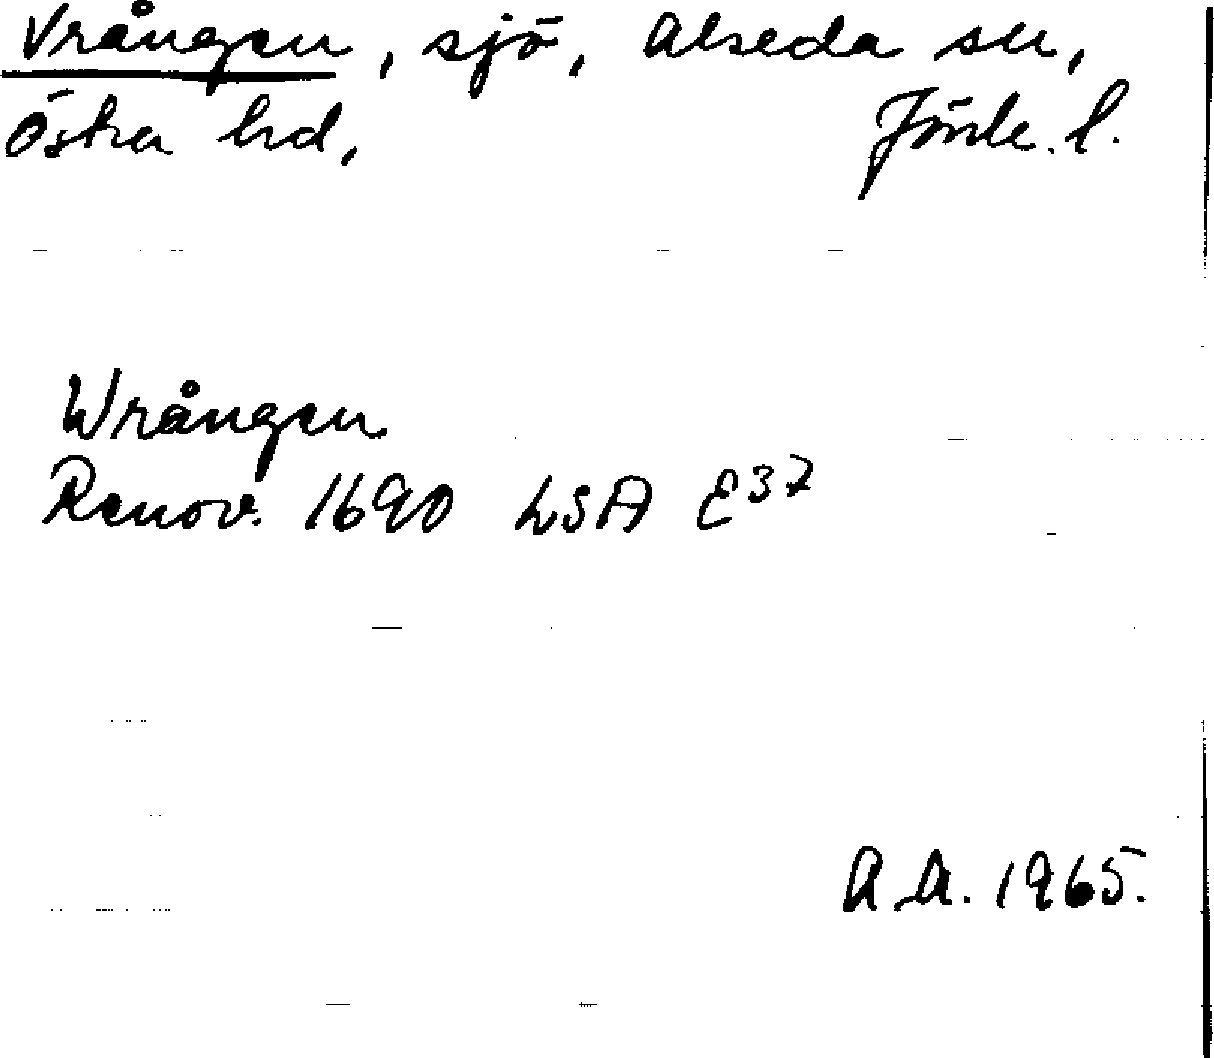 Vrången, sjö, Alseda sn,
Östra hd, Jönk. l.
Wrången
Renov. 1690 LSA E37
A.A. 1965.